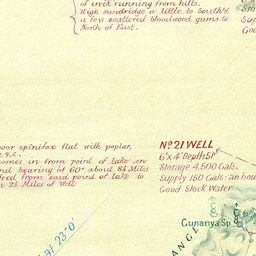 of creek running from hills.
High sandridge a little to South &
a few scattered bloodwood gums to
North of East.
Su
Goo
oor spinifex flat with poplar,
& c.
comes in from point of lake on
nd bearing of 60° about 8¼ Miles
feed from said point of lake to
n 2½ Miles of Well
No 21 WELL
6'x 4' Depth 51'
Storage 4,500 Gals.
Supply 150 Gals: an hou
Good Stock Water
at 23° 0'
Gunanya Sp
ANG